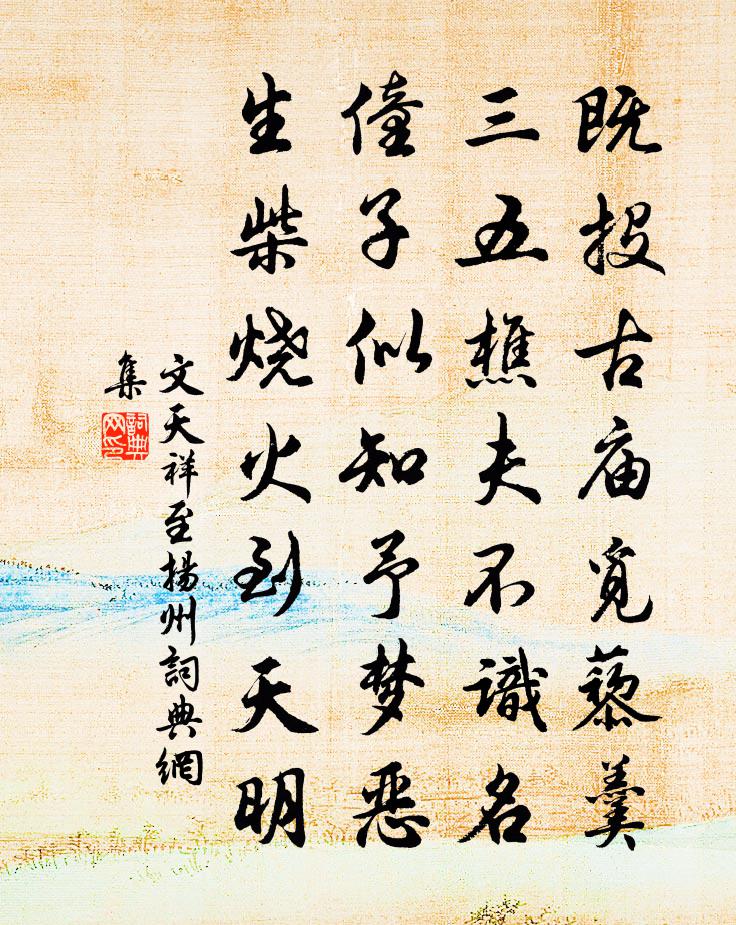 既投古庙觅藜羹
三五樵夫不識名
僮子似知予梦恶
生柴烧火到天明
文天祥至揚州詞典網
集
詞典
网印